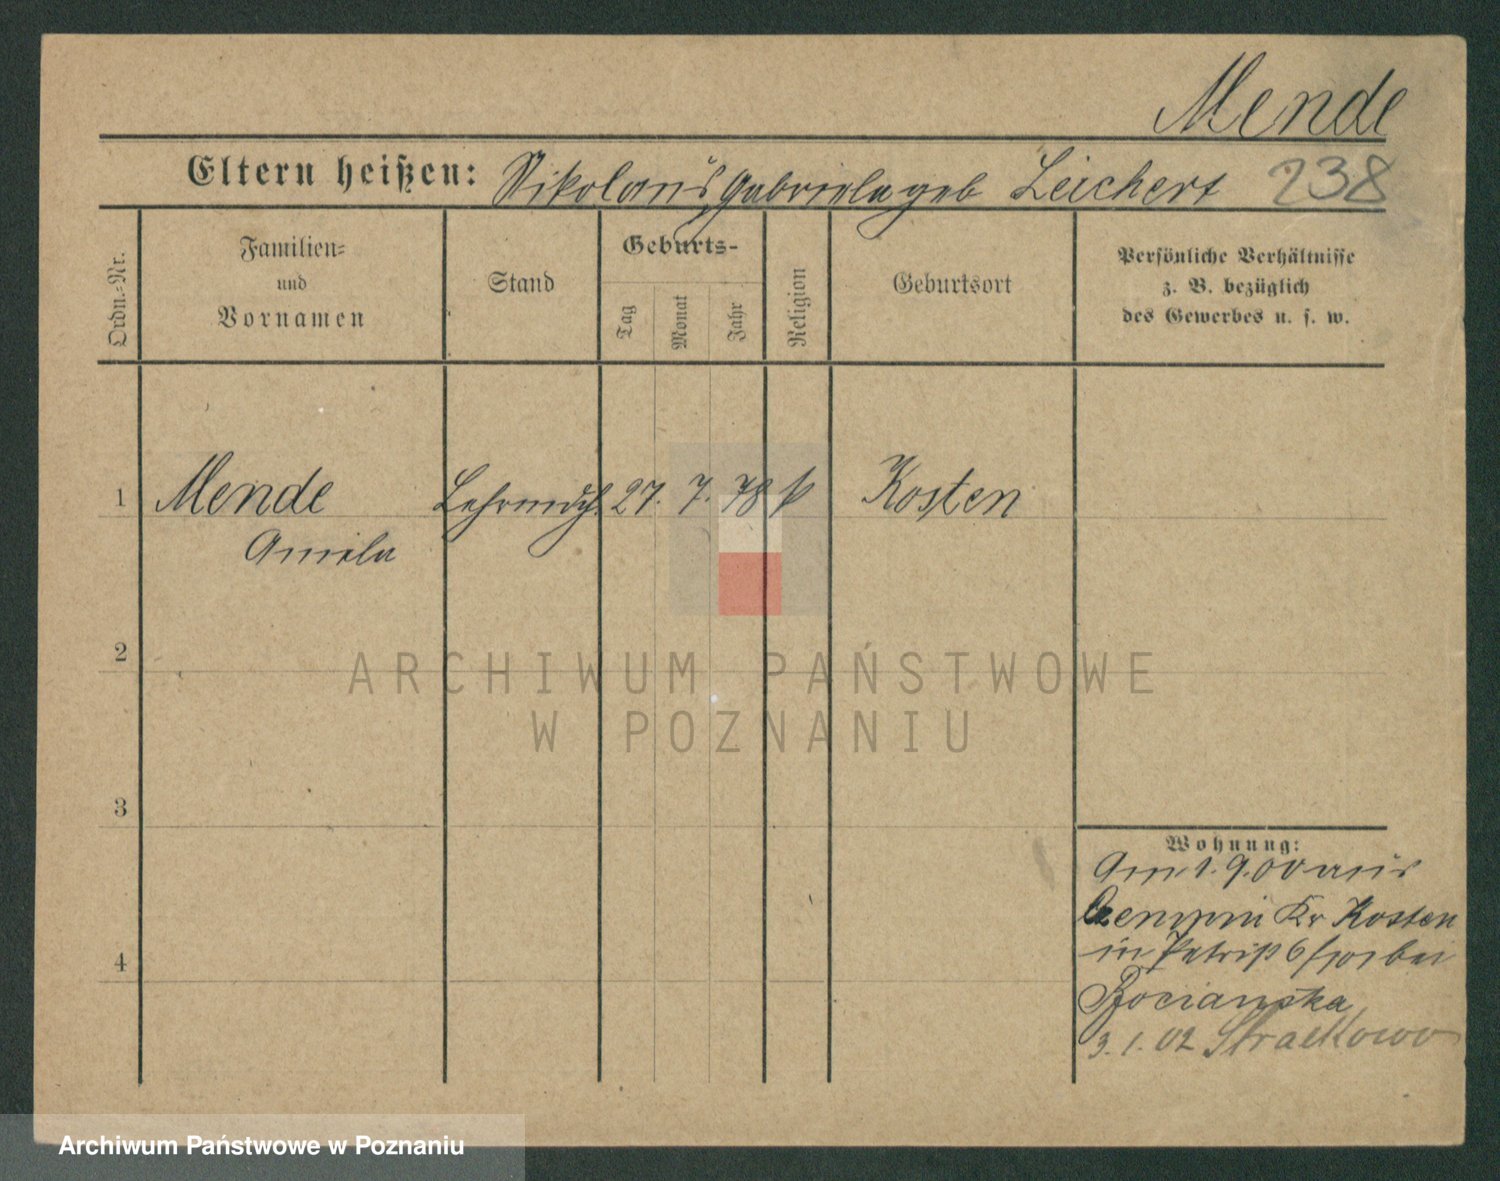 Mende
Eltern heißen: Nikolaus, Gabriela geb Leichert 238
Ordn.=Nr.
Familien=
und
Vornamen
Stand
Geburts-
Tag
Monat
Jahr
Religion
Geburtsort
Persönliche Verhältnisse
z. B. bezüglich
des Gewerbes u. s. w.
1 Mende 27. 7. 78 k Kosten
2
ARCHIWUM PAŃSTWOWE
W POZNANIU
3
4
Wohnung:
Am 1.9.00 aus
Czempin Kr Kosten
in bei
3.1.02
Archiwum Państwowe w Poznaniu